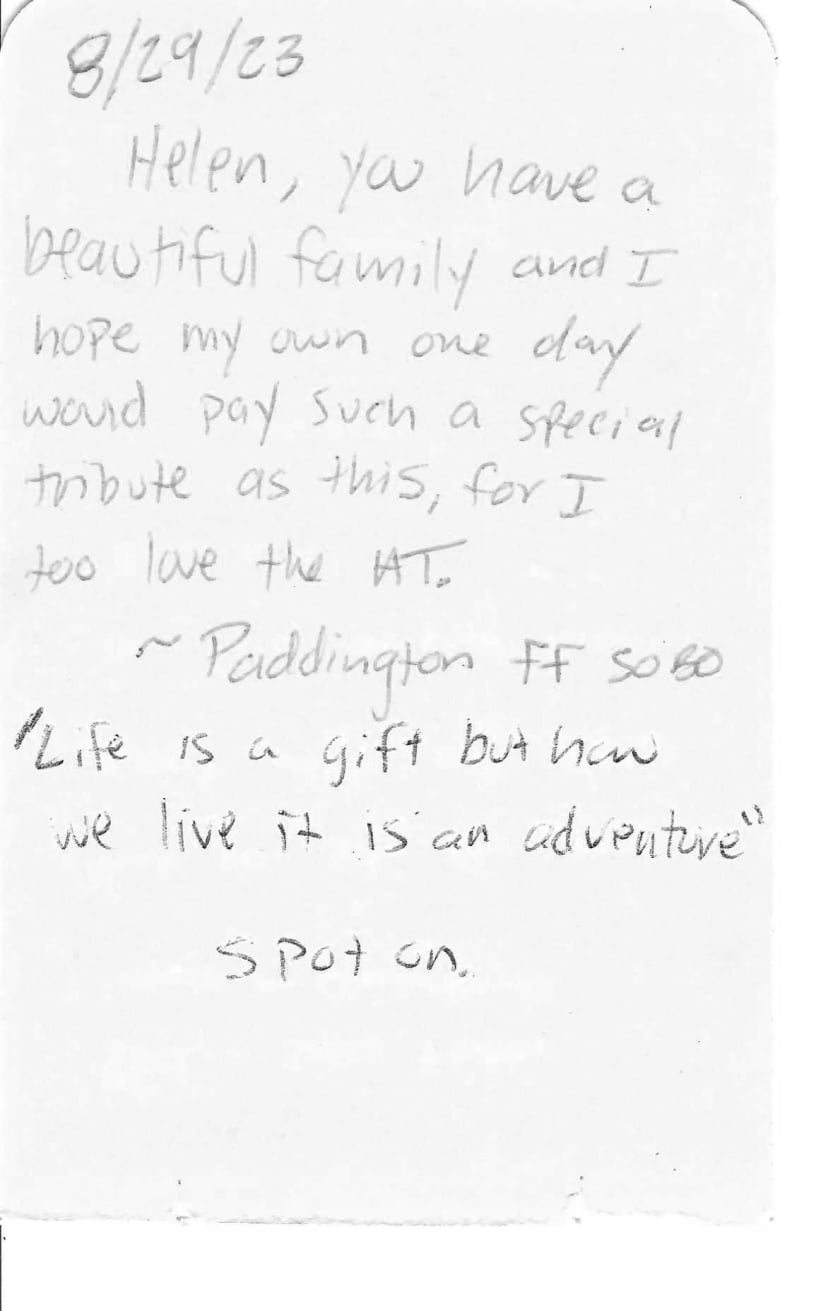 8/29/23
Helen, you have a
beautiful family and I
hope my own one day
would pay such a special
tribute as this, for I
too love the AT.
~ Paddington FF SOBO
"Life is a gift but how
we live it is an adventure"
Spot on.